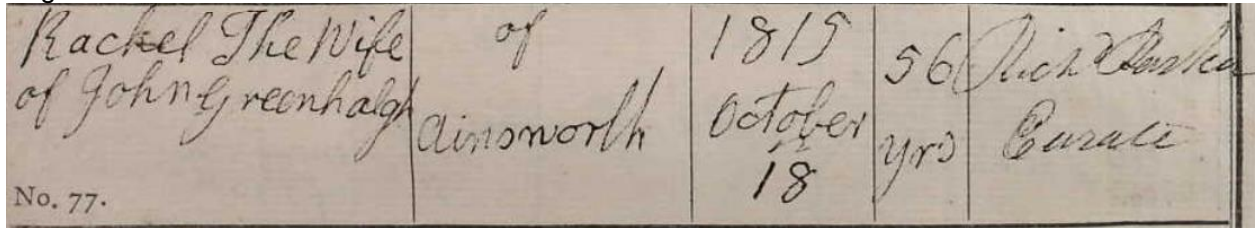 Rachel The Wife
of John Greenhalgh
No. 77.
of
Ainsworth
1815
October
18
56
yrs
Richd
Curate